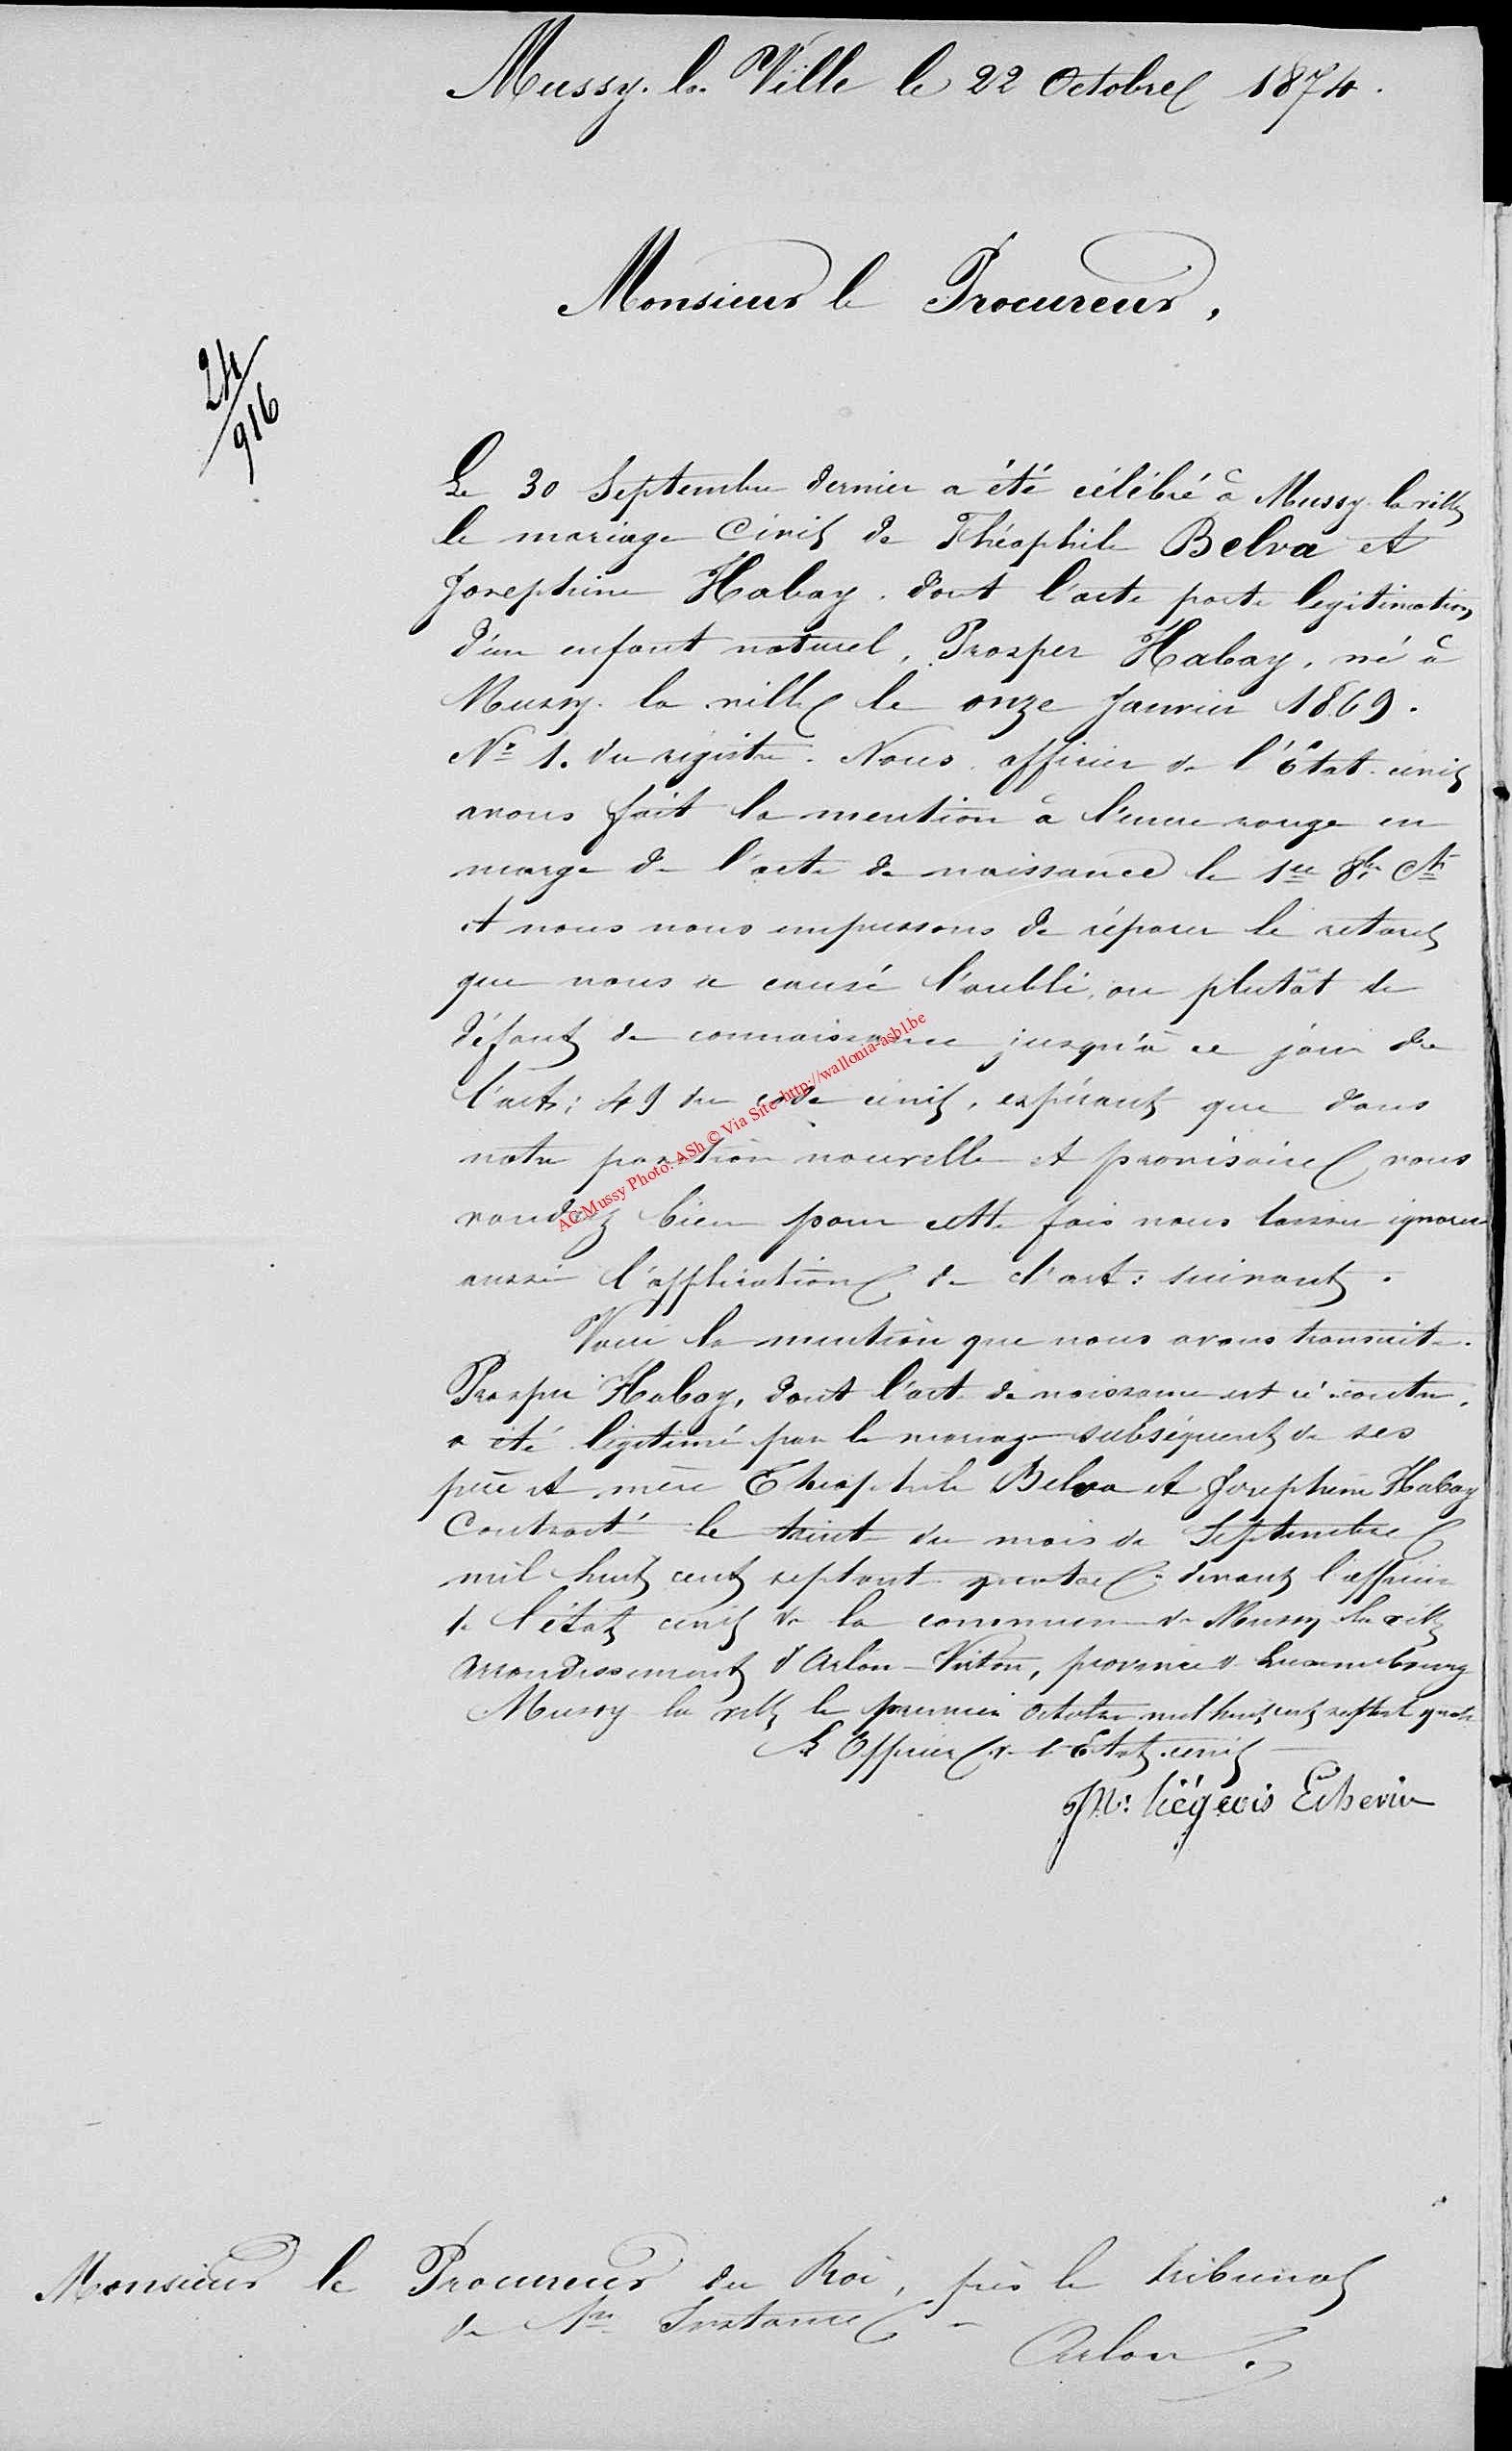 Mussy-la-Ville le 22 Octobre 1874.
Monsieur le Procureur,
24/916
Le 30 Septembre dernier a été célébré à Mussy-la-ville
le mariage Civil de Théophile Belva et
Josephine Habay. dont l'acte porte legitimation
d'un enfant naturel, Prosper Habay, né à
Mussy-la-ville le onze Janvier 1869.
N° 1. du régistre. Nous officier de l'État-civil
avons fait la mention à l'encre rouge en
marge de l'acte de naissance le 1er 8bre Ct
et nous nous empressons de réparer le retard
que nous a causé l'oubli, ou plutôt le
défaut de connaissance jusqu'à ce jour de
l'art: 49 du code civil, espérant que dans
notre position nouvelle et provisoire vous
voudrez bien pour cette fois nous laisser ignorer
aussi l'application de l'art: suivant.
Voici la mention que nous avons transcrite.
Prosper Habay, dont l'acte de naissance est ci-contre,
a été légitimé par le mariage subséquent de ses
père et mère Théophile Belva et Josephine Habay
Contracté le trente du mois de Septembre
mil huit cent septante quatre devant l'officier
de l'état civil de la commune de Mussy-la-ville
arrondissement d'Arlon-Virton, province de Luxembourg
Mussy-la-ville le premier octobre mil huit cent septante quatre
L'Officier de l'État-civil
Liégeois Echevin
Monsieur le Procureur du Roi, près le tribunal
de 1re Instance
Arlon.
AC Mussy Photo: ASh © Via Site-http://wallonia-asbl.be